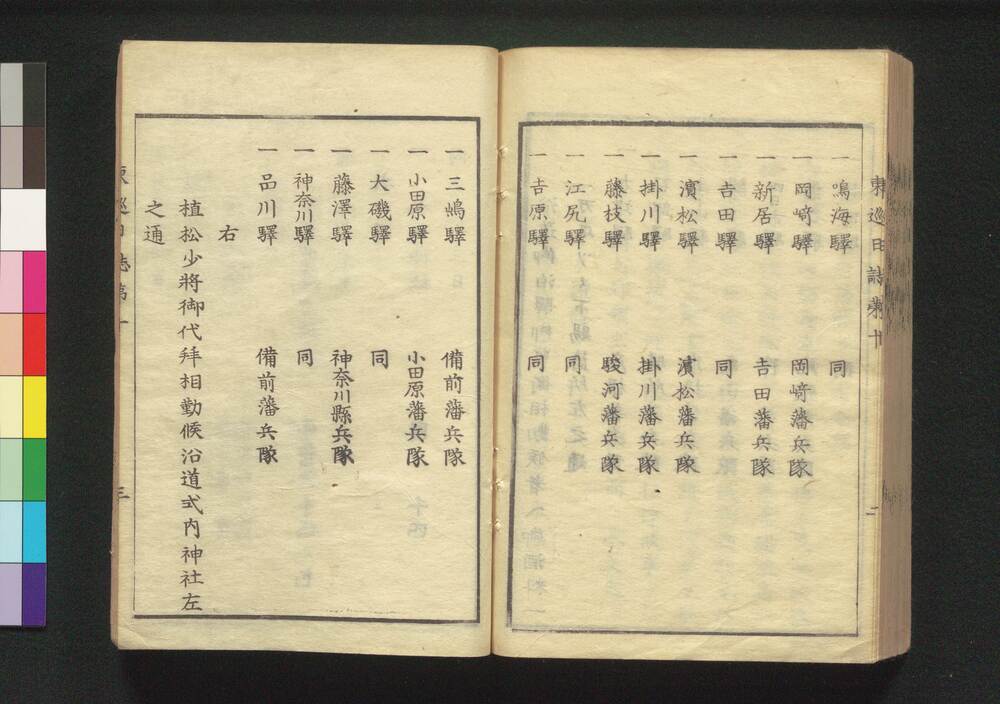 東巡日誌第十
一 鳴海驛 同
一 岡﨑驛 岡﨑藩兵隊
一 新居驛 吉田藩兵隊
一 吉田驛 同
一 濱松驛 濱松藩兵隊
一 掛川驛 掛川藩兵隊
一 藤枝驛 駿河藩兵隊
一 江尻驛 同
一 吉原驛 同
二
一 三嶋驛 備前藩兵隊
一 小田原驛 小田原藩兵隊
一 大磯驛 同
一 藤澤驛 神奈川縣兵隊
一 神奈川驛 同
一 品川驛 備前藩兵隊
右
植松少將御代拜相勤候沿道式内神社左
之通
東巡日誌第十
三